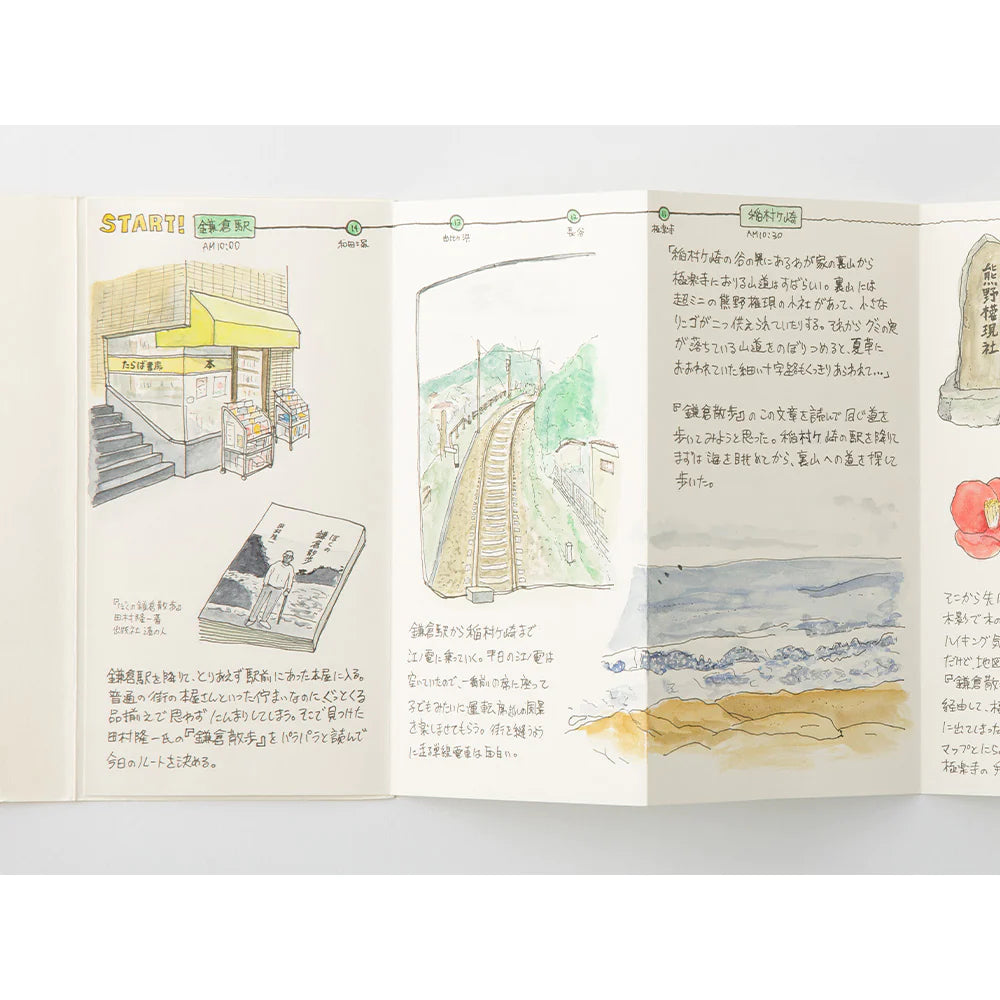 START! 鎌倉駅
AM10:00
14
和田塚
13
由比ヶ浜
12
長谷
11
極楽寺
稲村ヶ崎
AM10:30
たらば書房 本
ぼくの
鎌倉散歩
田村隆一
『ぼくの鎌倉散歩』
田村隆一著
出版社 港の人
鎌倉駅を降りて、とりあえず駅前にあった本屋に入る。
普通の街の本屋さんといった佇まいなのにぐっとくる
品揃えで思わずにんまりしてしまう。そこで見つけた
田村隆一氏の『鎌倉散歩』をパラパラと読んで
今日のルートを決める。
鎌倉駅から稲村ヶ崎まで
江ノ電に乗っていく。平日の江ノ電は
空いていたので、一番前の席に座って
子どもみたいに運転席越しの風景
を楽しませてもらう。街を縫うよう
に走る単線電車は面白い。
「稲村ヶ崎の谷の奥にあるわが家の裏山から
極楽寺におりる山道はすばらしい。裏山には
超ミニの熊野権現の小社があって、小さな
リンゴが二つ供えられていたりする。それからグミの実
が落ちている山道をのぼりつめると、夏草に
おおわれていた細い十字路もくっきりあらわれて…」
『鎌倉散歩』のこの文章を読んで同じ道を
歩いてみようと思った。稲村ヶ崎の駅を降りて
まずは海を眺めてから、裏山への道を探して
歩いた。
熊野権現社
そこから先は
木影で木の
ハイキング気
だけど地図
『鎌倉散
経由して、極
に出てきまった
マップとにら
極楽寺の